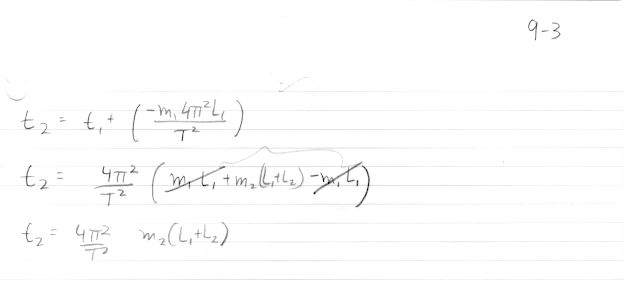 9-3
t₂ = t₁ + (-m₁4π²L₁/T²)
t₂ = 4π²/T² (m₁L₁ + m₂(L₁+L₂) - m₁L₁)
t₂ = 4π²/T² m₂(L₁+L₂)